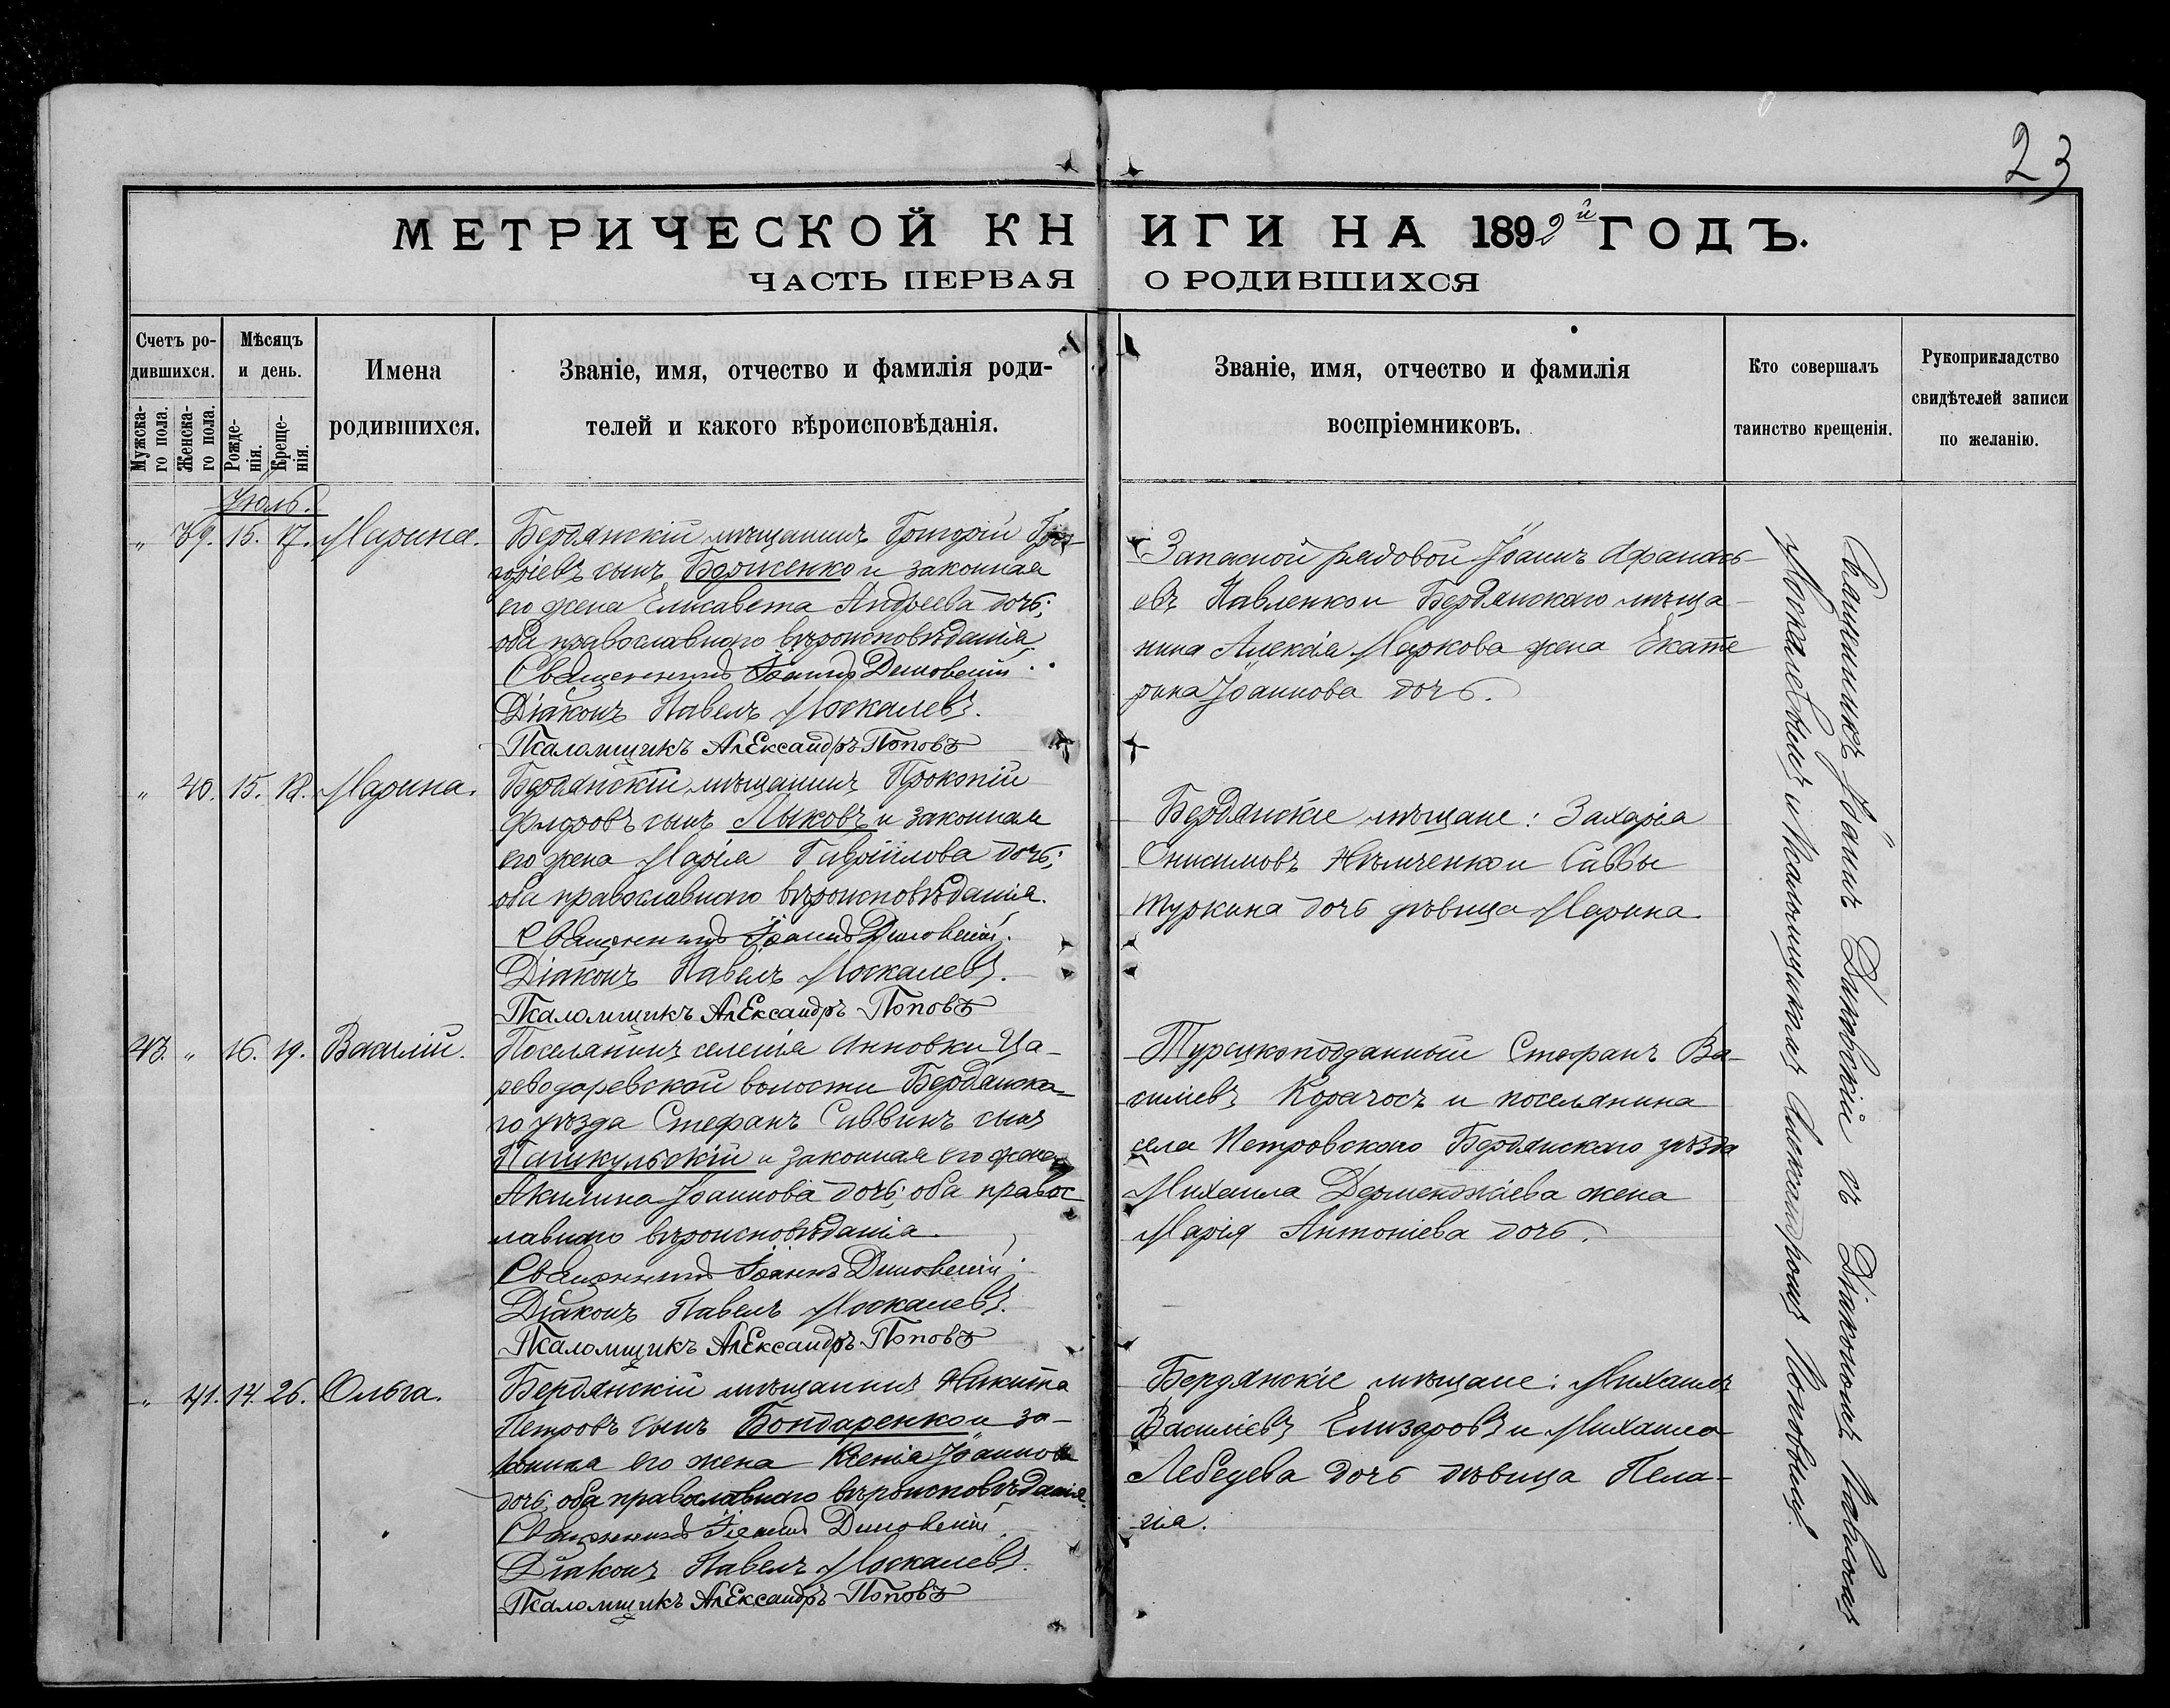 23
МЕТРИЧЕСКОЙ КНИГИ НА 1892й ГОДЪ.
ЧАСТЬ ПЕРВАЯ О РОДИВШИХСЯ
Счетъ ро-
дившихся.
Мужска-
го пола.
Женска-
го пола.
Мѣсяцъ
и день.
Рожде-
нія.
Креще-
нія.
Имена
родившихся.
Званіе, имя, отчество и фамилія роди-
телей и какого вѣроисповѣданія.
Званіе, имя, отчество и фамилія
воспріемниковъ.
Кто совершалъ
таинство крещенія.
Рукоприкладство
свидѣтелей записи
по желанію.
Іюль.
" 39. 15. 17. Марина.
Бердянскій мѣщанинъ Григорій Гри-
горіевъ сынъ Боженко и законная
его жена Елисавета Андреева дочь;
оба православнаго вѣроисповѣданія.
Священникъ Іоаннъ Димовскій.
Діаконъ Павелъ Москалевъ.
Псаломщикъ Александръ Поповъ
Запасной рядовой Іоаннъ Афанась-
евъ Павленко и Бердянскаго мѣща-
нина Алексія Маркова жена Екате
рина Іоаннова дочь.
" 40. 15. 18. Марина.
Бердянскій мѣщанинъ Прокопій
Флоровъ сынъ Лыковъ и законная
его жена Марія Гавріилова дочь;
оба православнаго вѣроисповѣданія.
Священникъ Іоаннъ Димовскій.
Діаконъ Павелъ Москалевъ.
Псаломщикъ Александръ Поповъ
Бердянскіе мѣщане: Захарія
Онисимовъ Нѣмченко и Саввы
Туркина дочь дѣвица Марина.
43. " 16. 19. Василій.
Поселянинъ селенія Инновки Ца-
реводаревской волости Бердянска-
го уѣзда Стефанъ Саввинъ сынъ
Пашкульскій и законная его жена
Акилина Іоаннова дочь; оба правос
лавнаго вѣроисповѣданія.
Священникъ Іоаннъ Димовскій.
Діаконъ Павелъ Москалевъ.
Псаломщикъ Александръ Поповъ
Турецкоподданный Стефанъ Ва-
силіевъ Корачосъ и поселянина
села Петровскаго Бердянскаго уѣзда
Михаила Дерменджіева жена
Марія Антоніева дочь.
" 41. 14. 26. Ольга.
Бердянскій мѣщанинъ Никита
Петровъ сынъ Бондаренко и за-
конная его жена Ксенія Іоаннова
дочь; оба православнаго вѣроисповѣданія.
Священникъ Іоаннъ Димовскій.
Діаконъ Павелъ Москалевъ.
Псаломщикъ Александръ Поповъ
Бердянскіе мѣщане: Михаилъ
Василіевъ Елизаровъ и Михаила
Лебедева дочь дѣвица Пела-
гія.
Священникъ Іоаннъ Димовскій съ Діакономъ Павломъ
Москалевымъ и Псаломщикомъ Александромъ Поповымъ.